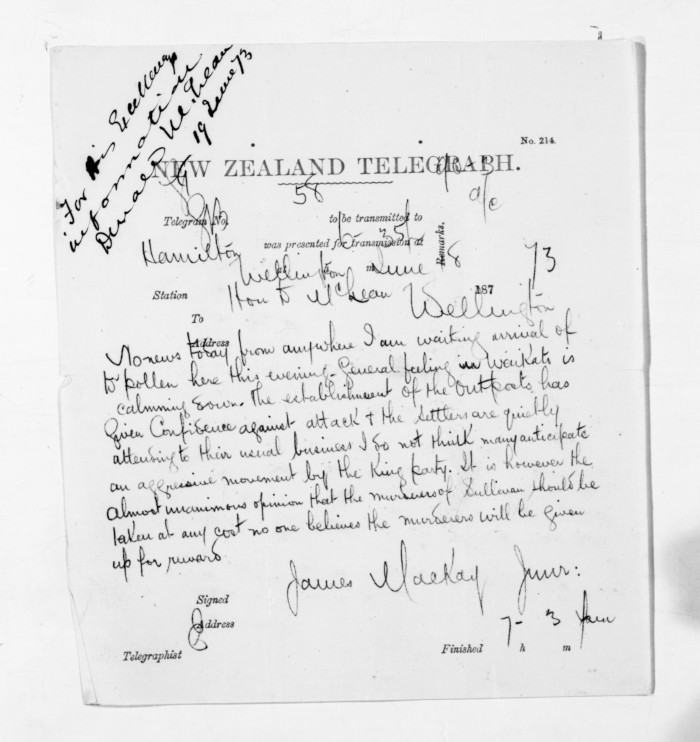 For His Excellency's
information
Donald McLean
19 June 73
No. 214.
NEW ZEALAND TELEGRAPH.
58
a/c
Telegram No. to be transmitted to
Hamilton was presented for transmission at
Remarks.
Wellington m June 8 1873
Station Hon D McLean Wellington
To
Address
No news today from anywhere I am waiting arrival of
Dr Pollen here this evening. General feeling in Waikato is
calmming down. The establishment of the outposts has
given Confidence against attack & the settlers are quietly
attending to their usual business I do not think many anticipate
an aggressive movement by the King party. It is however the
almost unanimous opinion that the murderers of Sullivan should be
taken at any cost no one believes the murderers will be given
up for reward
James Mackay Junr:
Signed
Address
7 - 3 pm
Telegraphist Finished h m